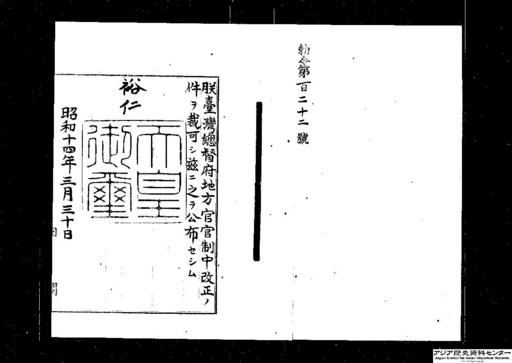 勅令第百二十二號
朕臺灣總督府地方官官制中改正ノ
件ヲ裁可シ茲ニ之ヲ公布セシム
裕仁
天皇
御璽
昭和十四年三月三十日
アジア歴史資料センター
Japan Center for Asian Historical Records